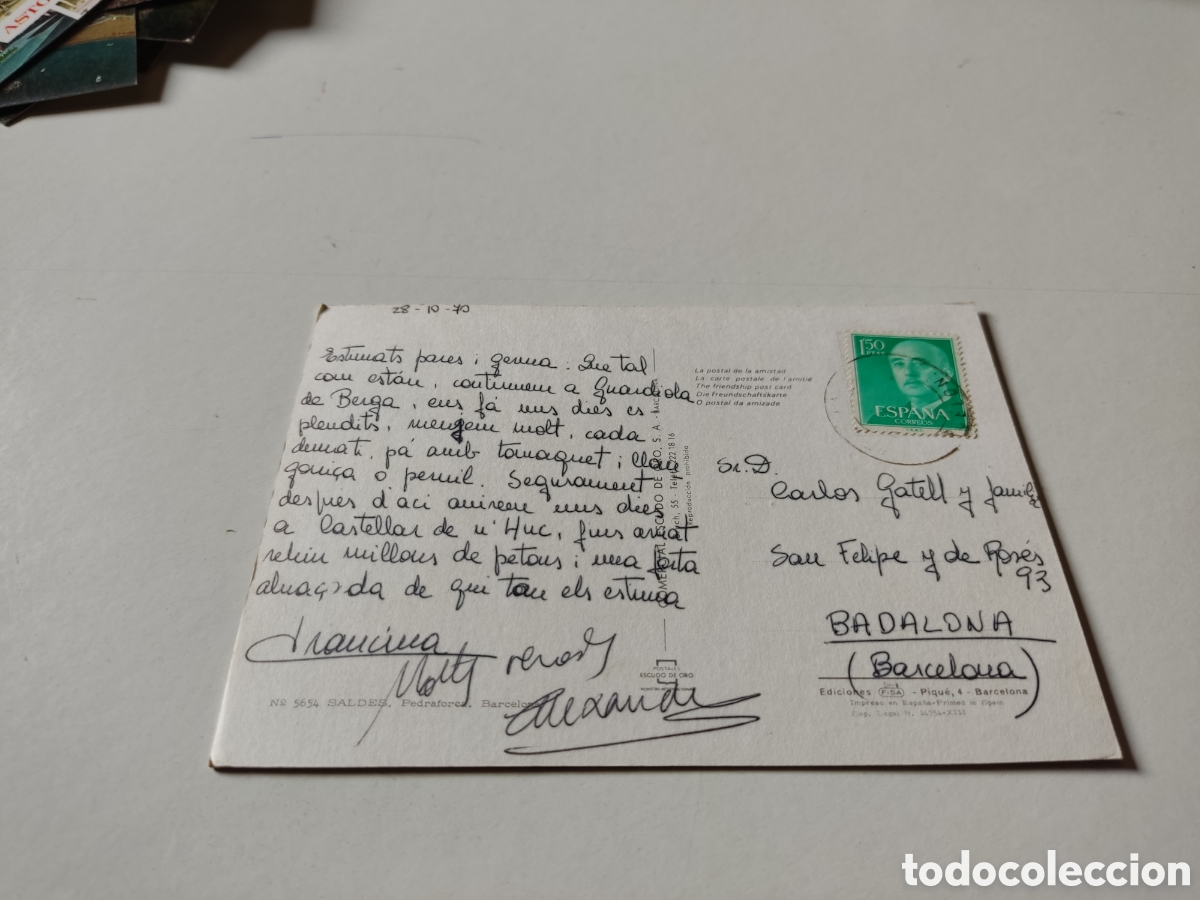 ASTO
28-10-70
Estimats pares i germa: Que tal
com están, continuem a Guardiola
de Berga, ens fá uns dies es
plendits, mengem molt, cada
demati, pá amb tomaquet i llon
ganiça o pernil. Segurament
despres d'aci anirem uns dies
a Castellar de n'Huc, fins aviat
rebin millons de petons i una forta
abraçada de qui tan els estima
Francina
Molts records
Alexandre
Nº 5654 SALDES. Pedraforca. Barcelona
COMERCIAL ESCUDO DE ORO, S. A. - BARC
55 - Tel. 222 18 16
Reproducción prohibida
POSTALES
ESCUDO DE ORO
La postal de la amistad
La carte postale de l'amitié
The friendship post card
Die Freundschaftskarte
O postal da amizade
1'50
PTAS
ESPAÑA
CORREOS
Sr. D.
Carlos Gatell y familia
San Felipe y de Rosés
93
BADALONA
(Barcelona)
Ediciones FISA - Piqué, 4 - Barcelona
Impreso en España-Printed in Spain
Dep. Legal B. 14954-XIII
todocoleccion